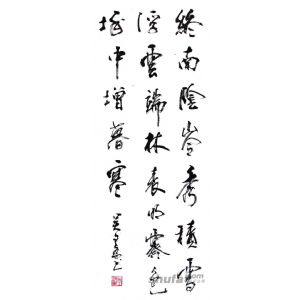 終南陰岺秀積雪
浮雲端林表明霽色
城中增暮寒